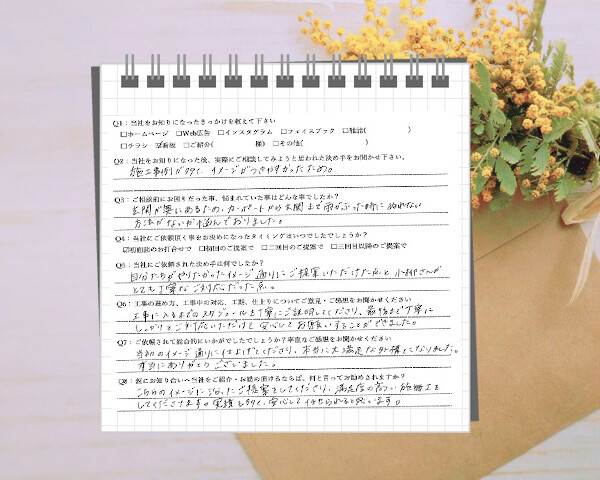 Q1：当社をお知りになったきっかけを教えて下さい
□ホームページ □Web広告 □インスタグラム □フェイスブック □雑誌( )
□チラシ ☑看板 □ご紹介( 様) □その他( )
Q2：当社をお知りになった後、実際にご相談してみようと思われた決め手をお聞かせ下さい。
施工事例が多くて、イメージがつきやすかったため。
Q3：ご相談前にお困りだった事、悩まれていた事はどんな事でしたか？
玄関が奥にあるため、カーポートから玄関まで雨がふった時にぬれない
方法がないか悩んでおりました。
Q4：当社にご依頼頂く事をお決めになったタイミングはいつでしたでしょうか？
☑初回面談のお打合せで □初回のご提案で □二回目のご提案で □三回目以降のご提案で
Q5：当社にご依頼された決め手は何でしたか？
自分たちがやりたかったイメージ通りにご提案いただけた点と 小柳さんが
とても丁寧なご対応だった点。
Q6：工事の進め方、工事中の対応、工期、仕上りについてご意見・ご感想をお聞かせください
工事に入るまでのスケジュールも丁寧にご説明してくださり、最後まで丁寧に
しっかりとご対応いただけて 安心してお願いすることができました。
Q7：ご依頼されて総合的にいかがでしたでしょうか？率直なご感想をお聞かせください
当初のイメージ通りに仕上げてくださり、本当に大満足な外構になりました。
本当にありがとうございました。
Q8：仮にお知り合いへ当社をご紹介・お勧め頂けるならば、何と言ってお勧めされますか？
こちらのイメージに沿ったご提案をしてくださり、満足度の高い施工を
してくださります。実績も多くて、安心して任せられると思います。